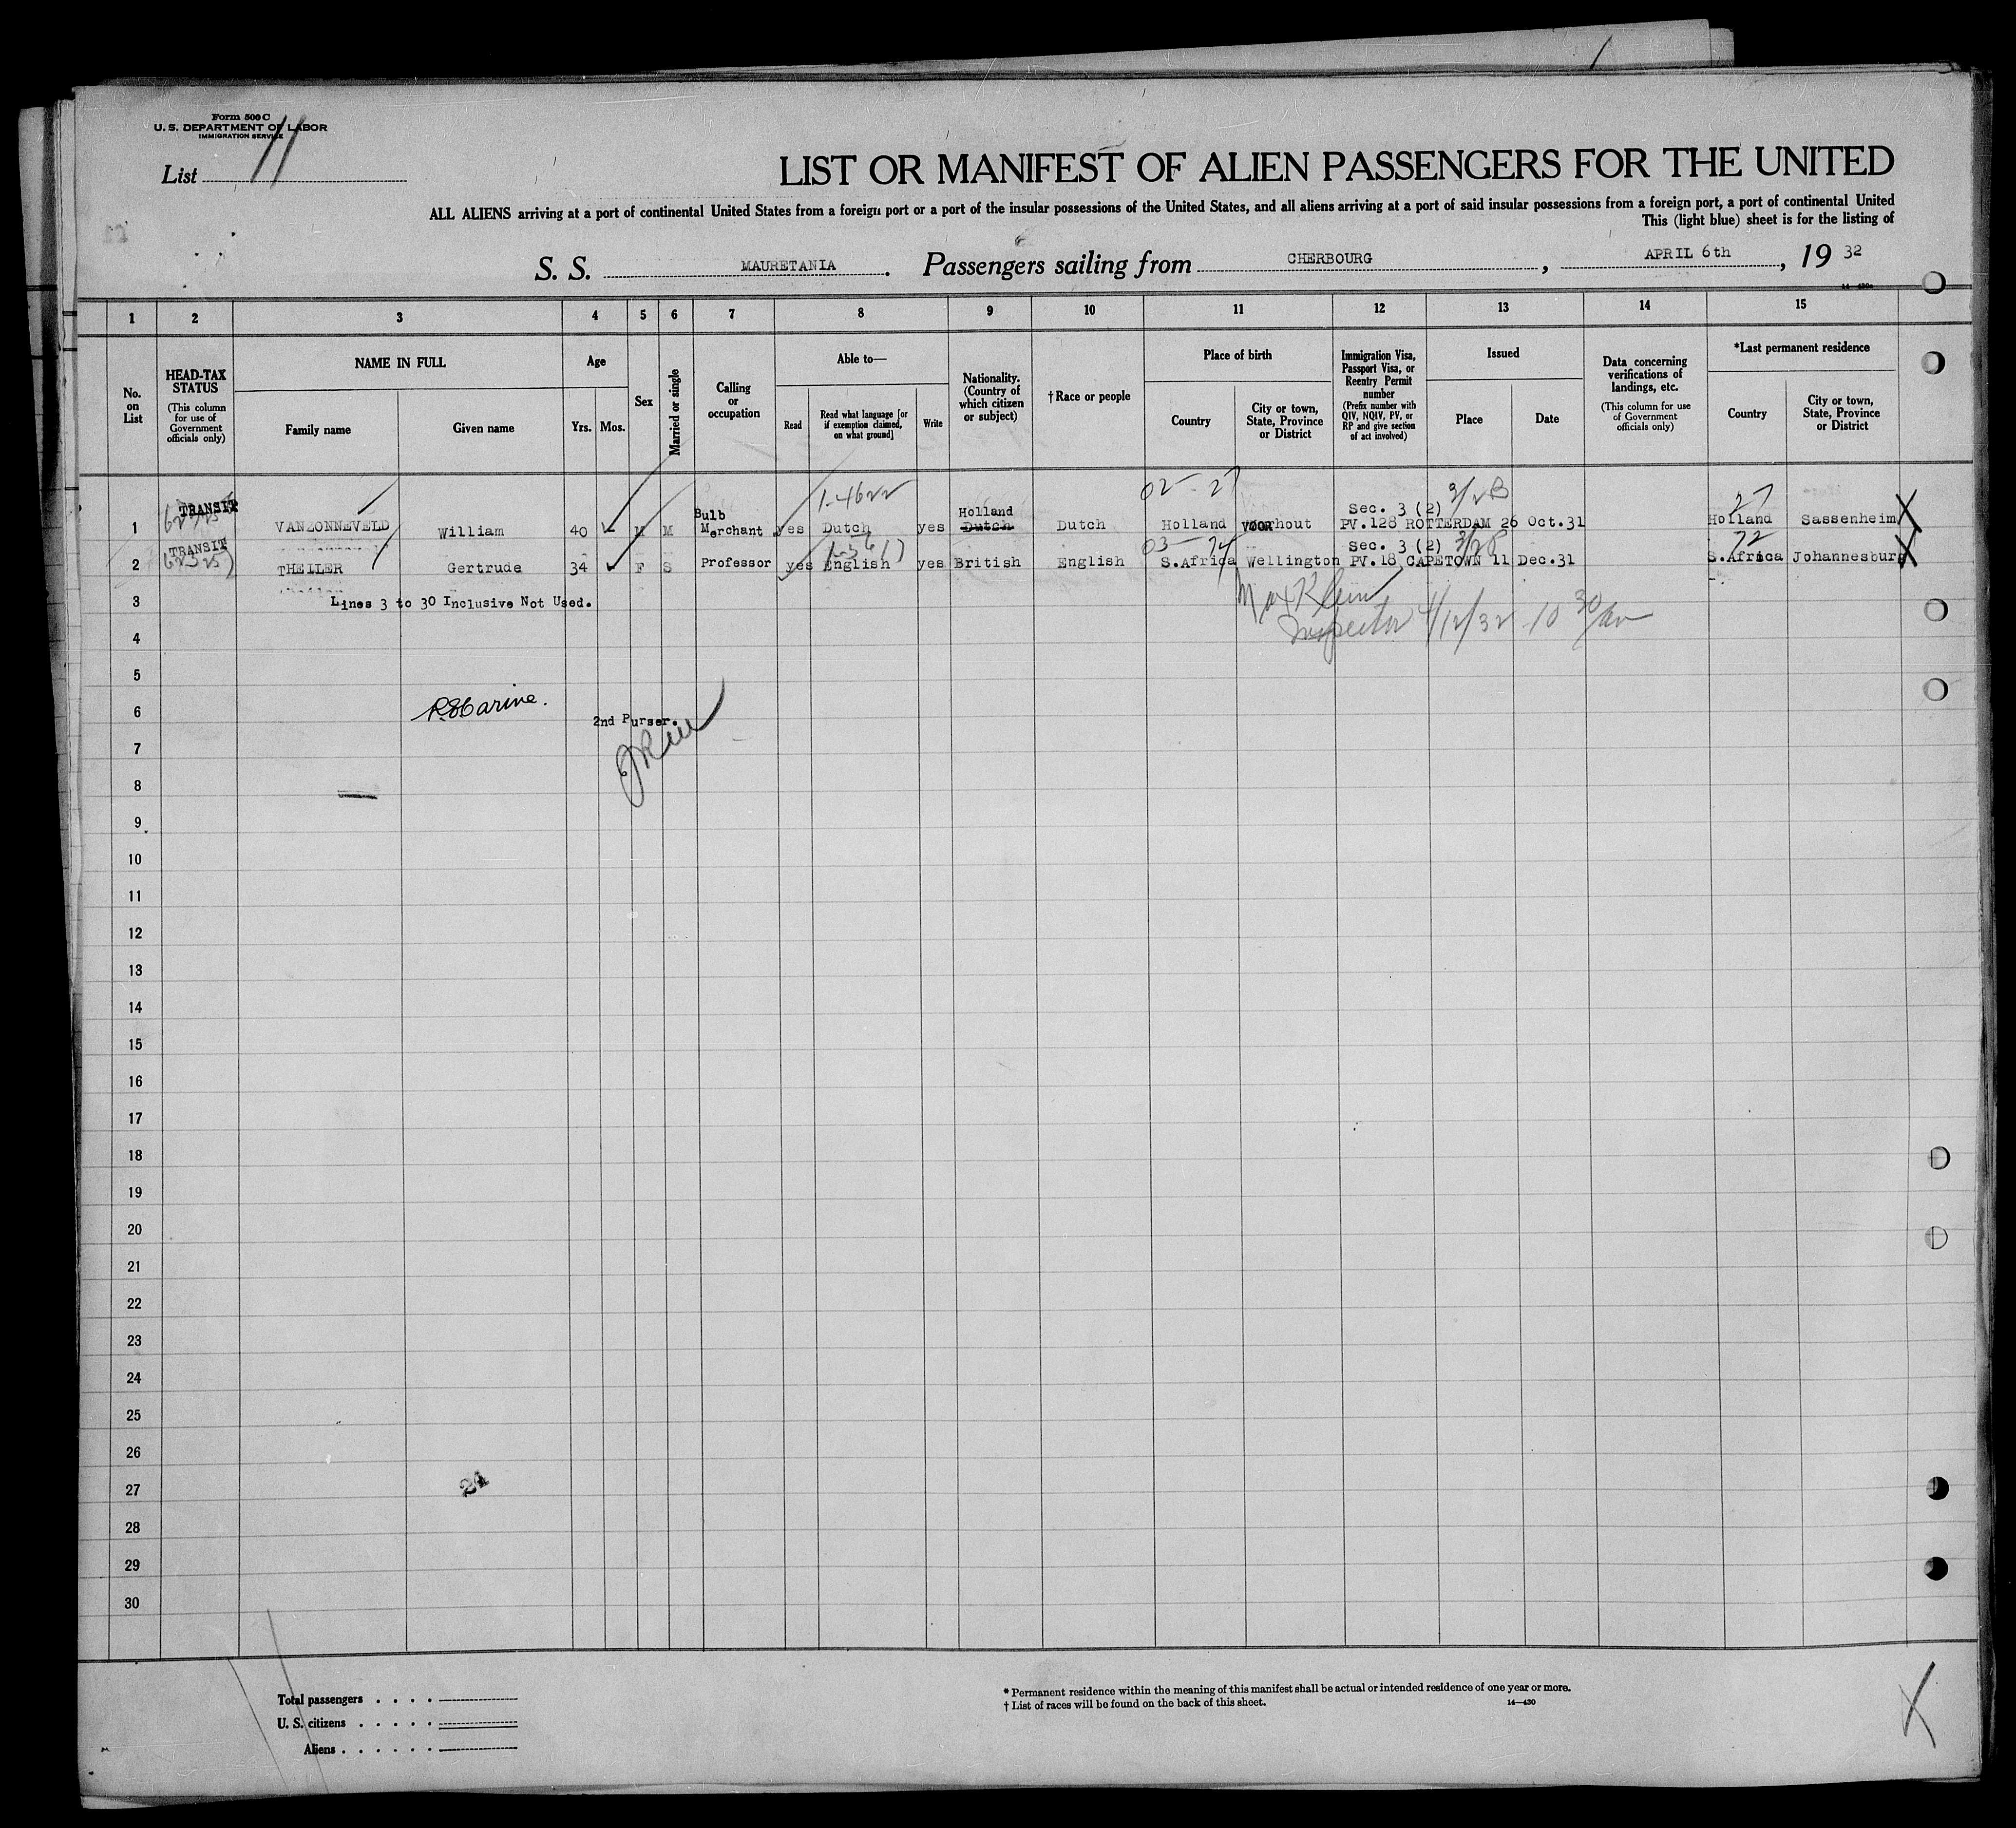 Form 500 C
U. S. DEPARTMENT OF LABOR
IMMIGRATION SERVICE
List 11
LIST OR MANIFEST OF ALIEN PASSENGERS FOR THE UNITED
ALL ALIENS arriving at a port of continental United States from a foreign port or a port of the insular possessions of the United States, and all aliens arriving at a port of said insular possessions from a foreign port, a port of continental United
This (light blue) sheet is for the listing of
S. S. MAURETANIA. Passengers sailing from CHERBOURG, APRIL 6th, 19 32
1 2 3 4 5 6 7 8 9 10 11 12 13 14 15
No. on List
HEAD-TAX STATUS (This column for use of Government officials only)
NAME IN FULL
Family name Given name
Age
Yrs. Mos.
Sex
Married or single
Calling or occupation
Able to—
Read
Read what language [or if exemption claimed, on what ground]
Write
Nationality. (Country of which citizen or subject)
†Race or people
Place of birth
Country
City or town, State, Province or District
Immigration Visa, Passport Visa, or Reentry Permit number (Prefix number with QIV, NQIV, PV, or RP and give section of act involved)
Issued
Place Date
Data concerning verifications of landings, etc. (This column for use of Government officials only)
*Last permanent residence
Country
City or town, State, Province or District
TRANSIT 1-4622 02-27 27
Bulb Holland Sec. 3 (2)
1 VANZONNEVELD William 40 M M Merchant yes Dutch yes Dutch Dutch Holland Voorhout PV.128 ROTTERDAM 26 Oct.31 Holland Sassenheim X
TRANSIT 03-74 Sec. 3 (2) 72
2 THEILER Gertrude 34 F S Professor yes English yes British English S.Africa Wellington PV.18 CAPETOWN 11 Dec.31 S.Africa Johannesburg X
3 Lines 3 to 30 Inclusive Not Used. Max Klein
4 Inspector 4/12/32 10 30/am
5
6 2nd Purser.
7
8
9
10
11
12
13
14
15
16
17
18
19
20
21
22
23
24
25
26
27 24
28
29
30
Total passengers . . . .
U. S. citizens . . . . .
Aliens . . . . . .
* Permanent residence within the meaning of this manifest shall be actual or intended residence of one year or more.
† List of races will be found on the back of this sheet. 14—430